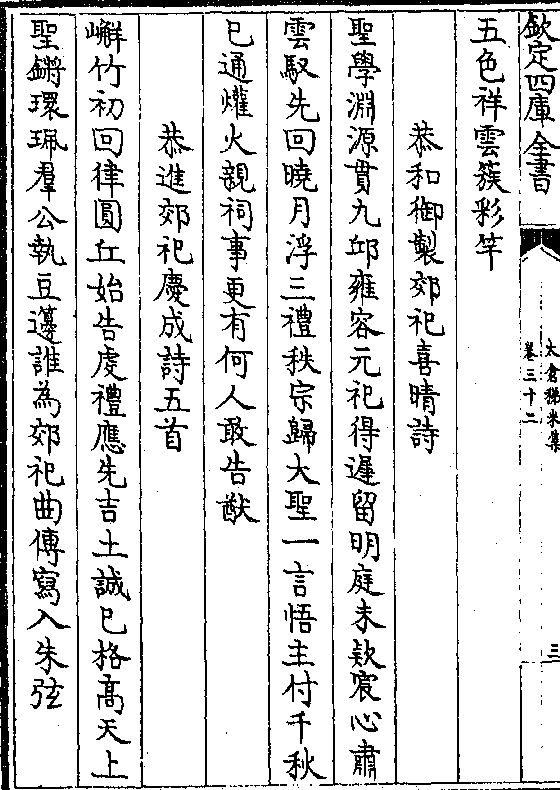 欽定四庫全書
太倉稊米集
卷三十二
三
五色祥雲簇彩竿
恭和御製郊祀喜晴詩
聖學淵源貫九邱雍容元祀得遲留明庭未欵宸心肅
雲馭先回曉月浮三禮秩宗歸大聖一言悟主付千秋
已通爟火親祠事更有何人敢告猷
恭進郊祀慶成詩五首
嶰竹初回律圓丘始告䖍禮應先吉土誠已格髙天上
聖鏘環珮羣公執豆籩誰為郊祀曲傳寫入朱弦